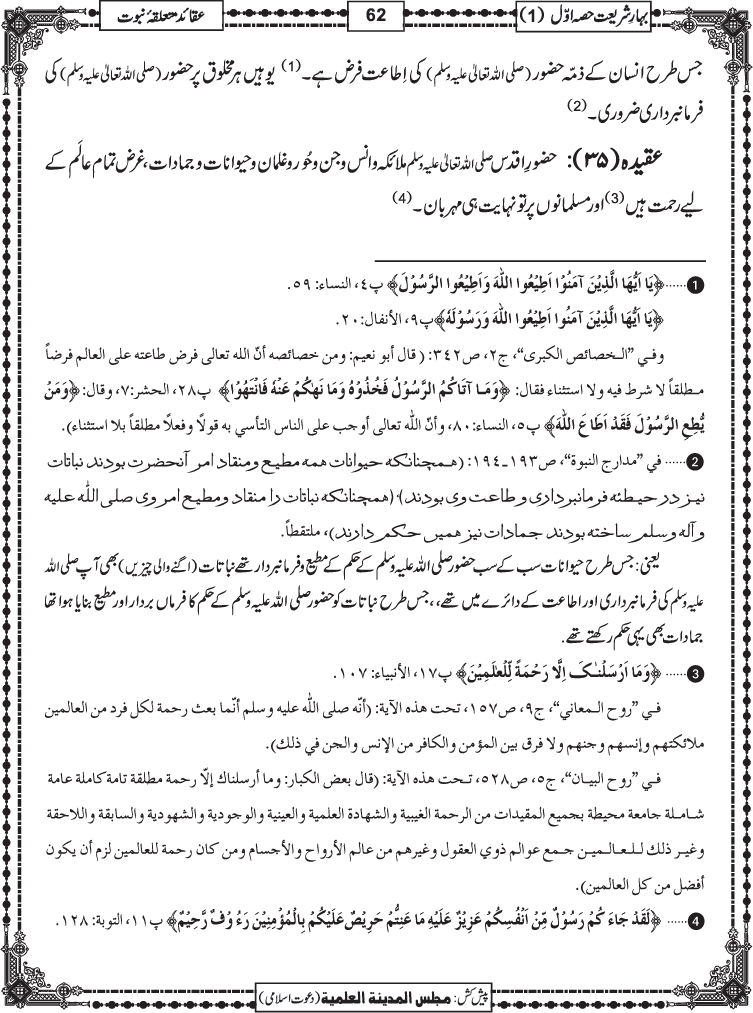 بہارِ شریعت حصہ اوّل (1)
62
عقائد متعلقۂ نبوت
جس طرح انسان کے ذمّہ حضور (صلی اللہ تعالیٰ علیہ وسلم) کی اِطاعت فرض ہے۔(1) یوہیں ہر مخلوق پر حضور (صلی اللہ تعالیٰ علیہ وسلم) کی
فرمانبرداری ضروری۔(2)
عقیدہ (۳۵): حضورِ اقدس صلی اللہ تعالیٰ علیہ وسلم ملائکہ وانس وجن وحُور وغلمان وحیوانات وجمادات، غرض تمام عالَم کے
لیے رحمت ہیں(3) اور مسلمانوں پر تو نہایت ہی مہربان۔(4)
1 ...... ﴿يَا اَيُّهَا الَّذِيْنَ آمَنُوْا اَطِيْعُوا اللّٰهَ وَاَطِيْعُوا الرَّسُوْلَ﴾ پ٤، النساء: ٥٩.
﴿يَا اَيُّهَا الَّذِيْنَ آمَنُوْا اَطِيْعُوا اللّٰهَ وَرَسُوْلَهٗ﴾ پ٩، الأنفال: ٢٠.
وفـي ”الـخصائص الكبرى“، ج٢، ص٣٤٢: ( قال أبو نعيم: ومن خصائصه أنّ الله تعالى فرض طاعته على العالم فرضاً
مـطلقاً لا شرط فيه ولا استثناء فقال: ﴿وَمَـا آتَاكُمُ الرَّسُوْلُ فَخُذُوْهُ وَمَا نَهٰكُمْ عَنْهُ فَانْتَهُوْا﴾ پ٢٨، الحشر:٧، وقال: ﴿وَمَنْ
يُّطِعِ الرَّسُوْلَ فَقَدْ اَطَاعَ اللّٰهَ﴾ پ٥، النساء: ٨٠، وأنّ الله تعالى أوجب على الناس التأسي به قولًا وفعلًا مطلقاً بلا استثناء).
2 ...... في ”مدارج النبوة“، ص١٩٣ـ١٩٤: (هـمچنانکه حیوانات همه مطیع ومنقاد امر آنحضرت بودند نباتات
نیـز در حیطئه فرمانبرداری وطاعت وی بودند﴾ (همچنانکه نباتات را منقاد ومطیع امر وی صلی الله علیه
وآله وسلم ساخته بودند جمادات نیز همیں حکم دارند)، ملتقطاً.
یعنی: جس طرح حیوانات سب کے سب حضور صلی اللہ علیہ وسلم کے حکم کے مطیع وفرمانبردار تھے نباتات (اگنے والی چیزیں) بھی آپ صلی اللہ
علیہ وسلم کی فرمانبرداری اور اطاعت کے دائرے میں تھے،، جس طرح نباتات کو حضور صلی اللہ علیہ وسلم کے حکم کا فرماں بردار اور مطیع بنایا ہوا تھا
جمادات بھی یہی حکم رکھتے تھے.
3 ...... ﴿وَمَا اَرْسَلْنٰـکَ اِلَّا رَحْمَةً لِّلْعٰلَمِيْنَ﴾ پ١٧، الأنبياء: ١٠٧.
فـي ”روح الـمعاني“، ج٩، ص١٥٧، تحت هذه الآية: (أنّه صلى الله عليه وسلم أنّما بعث رحمة لكل فرد من العالمين
ملائكتهم وإنسهم وجنهم ولا فرق بين المؤمن والكافر من الإنس والجن في ذلك).
فـي ”روح البيـان“، ج٥، ص٥٢٨، تـحت هذه الآية: (قال بعض الكبار: وما أرسلناك إلّا رحمة مطلقة تامة كاملة عامة
شـامـلة جامعة محيطة بجميع المقيدات من الرحمة الغيبية والشهادة العلمية والعينية والوجودية والشهودية والسابقة واللاحقة
وغيـر ذلك لـلـعـالـمـين جـمع عوالم ذوي العقول وغيرهم من عالم الأرواح والأجسام ومن كان رحمة للعالمين لزم أن يكون
أفضل من كل العالمين).
4 ...... ﴿لَقَدْ جَاءَ كُمْ رَسُوْلٌ مِّنْ اَنْفُسِكُمْ عَزِيْزٌ عَلَيْهِ مَا عَنِتُّمْ حَرِيْصٌ عَلَيْكُمْ بِالْمُؤْمِنِيْنَ رَءُ وْفٌ رَّحِيْمٌ﴾ پ١١، التوبة: ١٢٨.
پیش کش: مجلس المدینة العلمیة (دعوت اسلامی)